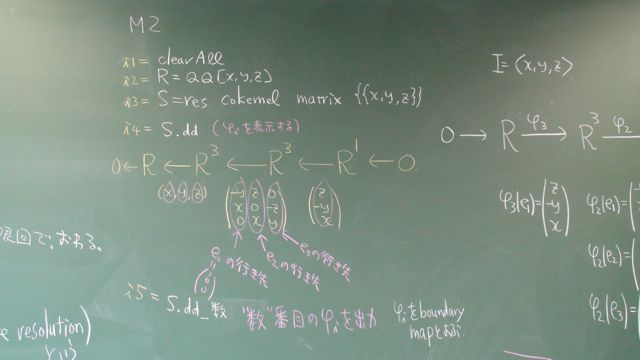 M2
i1 = clearAll
i2 = R = QQ[x,y,z]
i3 = S=res cokernel matrix {{x,y,z}}
i4 = S.dd (φiを表示する)
0 ← R ← R^3 ← R^3 ← R^1 ← 0.
(x, y, z) (-y z 0 / x 0 -z / 0 x y) (z / -y / x)
e1の行き先
e2の行き先
e3の行き先
i5 = S.dd_数 "数"番目のφiを出力
φiをboundary
mapとよぶ
I = ⟨x,y,z⟩
0 → R φ3→ R^3 φ2
φ3(e1) = (z / -y / x) φ2(e1) =
φ2(e2) =
φ2(e3) =
回で,おわる。
resolution)